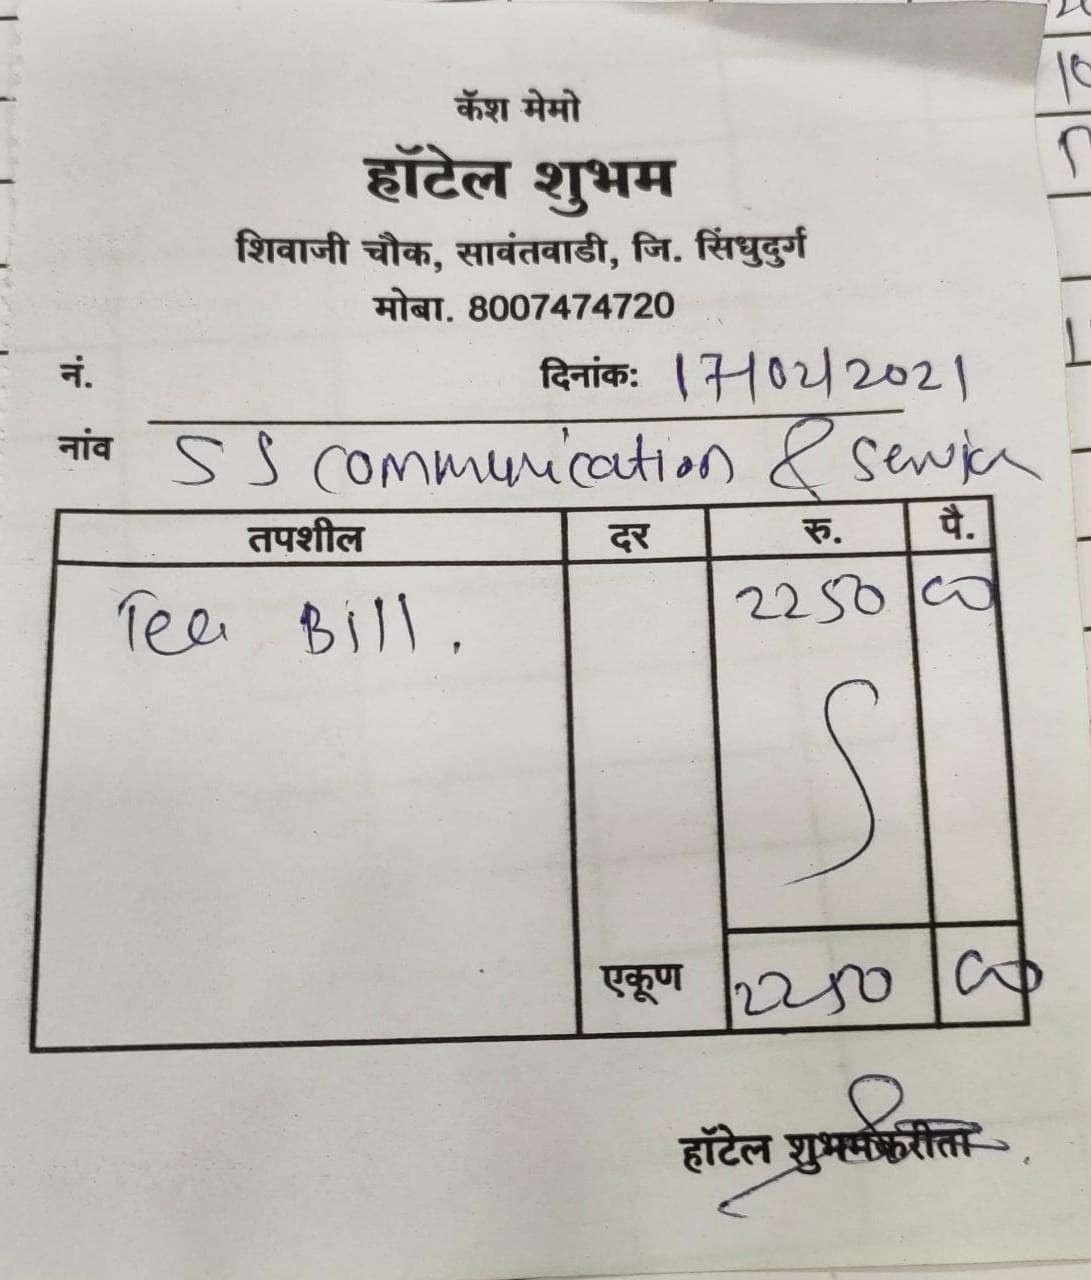 कॅश मेमो
हॉटेल शुभम
शिवाजी चौक, सावंतवाडी, जि. सिंधुदुर्ग
मोबा. 8007474720
नं. दिनांक: 17/02/2021
नांव S S communication & service
तपशील दर रु. पै.
Tea Bill. 2250 00
एकूण 2250 00
हॉटेल शुभमकरीता